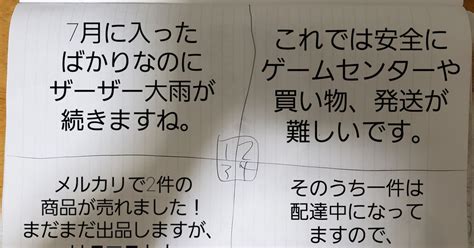 7月に入った
ばかりなのに
ザーザー大雨が
続きますね。
これでは安全に
ゲームセンターや
買い物、発送が
難しいです。
1 2
3 4
メルカリで2件の
商品が売れました！
まだまだ出品しますが、
そのうち一件は
配達中になって
ますので、